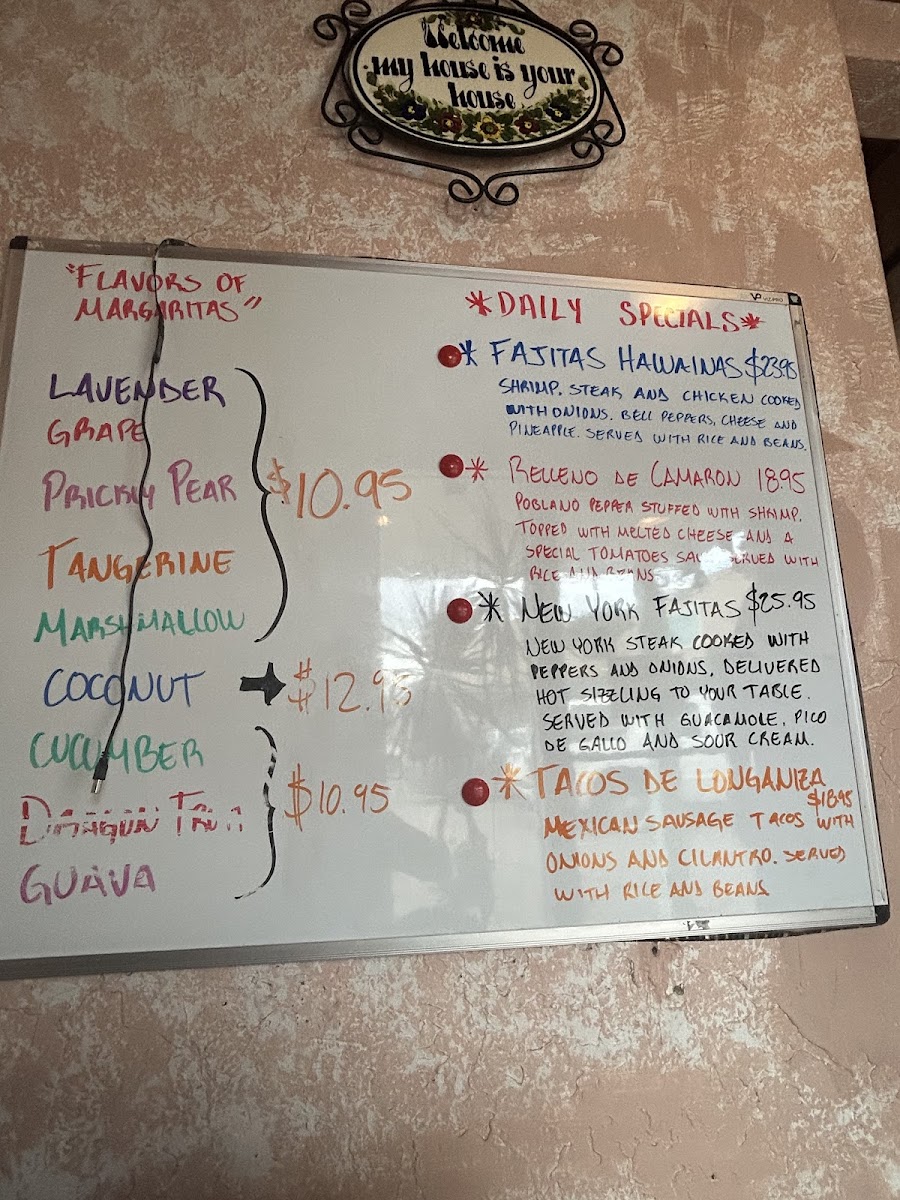 Welcome
my house is your
house
"FLAVORS OF
MARGARITAS"
LAVENDER
GRAPE
PRICKLY PEAR
TANGERINE
MARSHMALLOW
$10.95
COCONUT
$12.95
CUCUMBER
DRAGON
GUAVA
$10.95
*DAILY SPECIALS*
* FAJITAS HAWAINAS $23.95
SHRIMP. STEAK AND CHICKEN COOKED
WITH ONIONS. BELL PEPPERS, CHEESE AND
PINEAPPLE. SERVED WITH RICE AND BEANS.
* RELLENO DE CAMARON 18.95
POBLANO PEPPER STUFFED WITH SHRIMP.
TOPPED WITH MELTED CHEESE AND A
SPECIAL TOMATOES SERVED WITH
RICE AND BEANS
* NEW YORK FAJITAS $25.95
NEW YORK STEAK COOKED WITH
PEPPERS AND ONIONS, DELIVERED
HOT SIZZLING TO YOUR TABLE.
SERVED WITH GUACAMOLE, PICO
DE GALLO AND SOUR CREAM.
* TACOS DE LONGANIZA
$18.95
MEXICAN SAUSAGE TACOS WITH
ONIONS AND CILANTRO. SERVED
WITH RICE AND BEANS